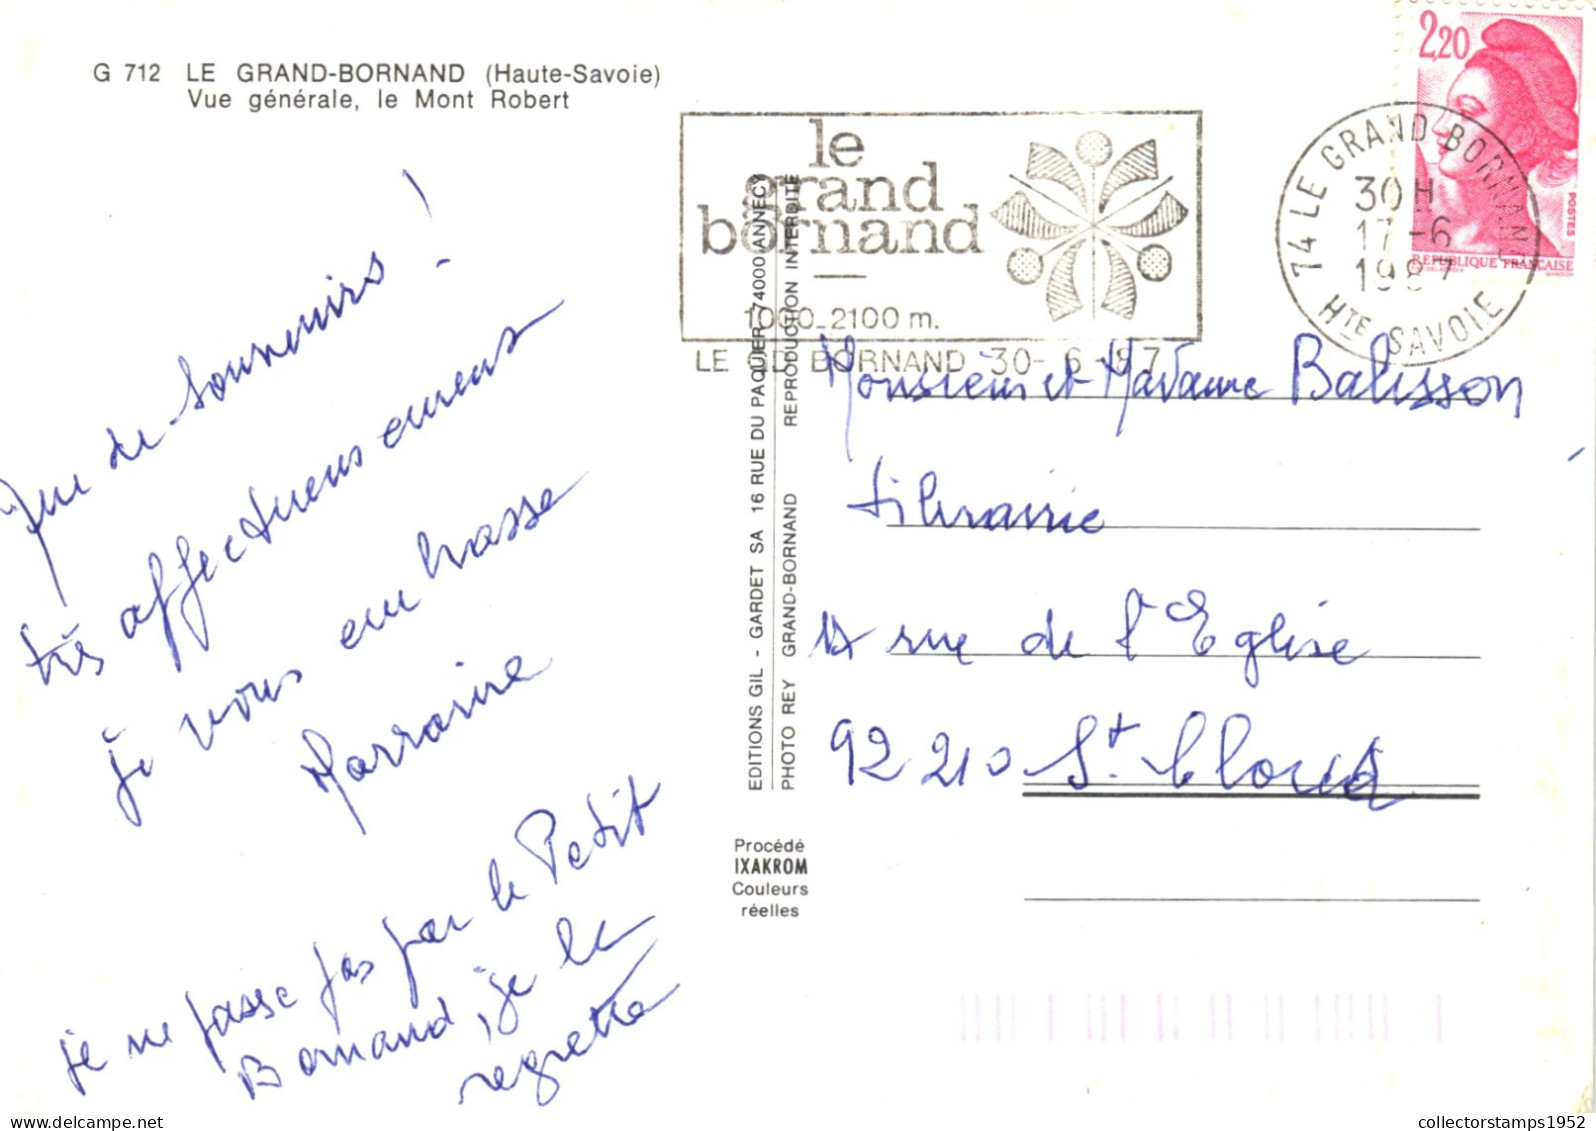 G 712 LE GRAND-BORNAND (Haute-Savoie)
Vue générale, le Mont Robert
Que de souvenirs !
très affectueusement
je vous embrasse
Marraine
je ne passe pas par le Petit
Bornand, je le
regrette
le
grand
bornand
1000-2100 m.
LE GD BORNAND 30-6 87
2,20
POSTES
REPUBLIQUE FRANÇAISE
74 LE GRAND-BORNAND
30 H
17-6
1987
HTE SAVOIE
EDITIONS GIL - GARDET SA 16 RUE DU PAQUIER 74000 ANNECY
PHOTO REY GRAND-BORNAND REPRODUCTION INTERDITE
Monsieur et Madame Balisson
Librairie
rue de l'Eglise
92210 St. Cloud
Procédé
IXAKROM
Couleurs
réelles
collectorstamps1952